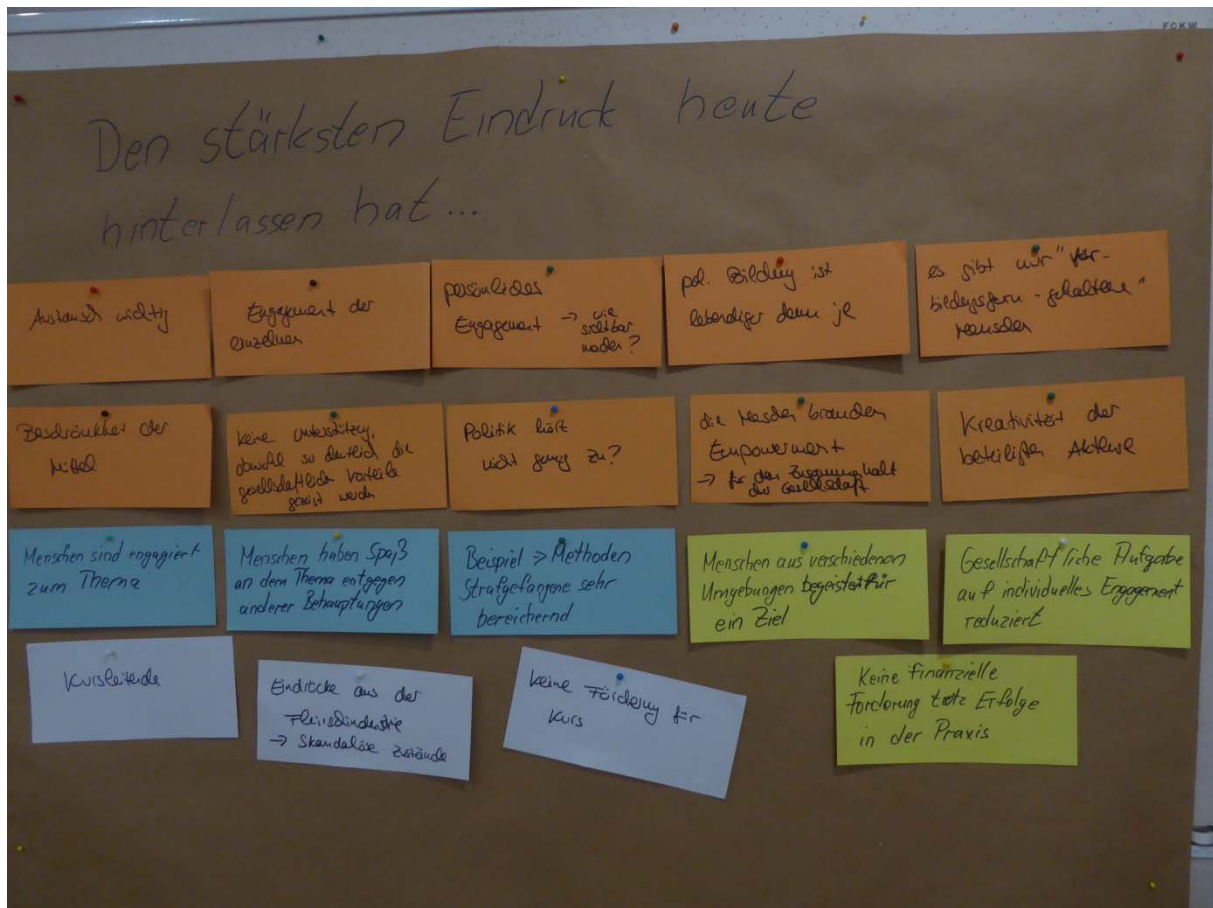 FCKW
Den stärksten Eindruck heute
hinterlassen hat...
Austausch wichtig
Engagement der
einzelnen
persönliches
Engagement → wie
sichtbar
machen?
pol. Bildung ist
lebendiger denn je
es gibt nur "
bildungsfern - gehaltene"
Menschen
Beschränktheit der
Mittel
keine Unterstützung,
obwohl so deutlich die
gesellschaftlichen Vorteile
gezeigt werden
Politik hört
nicht genug zu?
die Menschen brauchen
Empowerment
→ für den Zusammenhalt
der Gesellschaft
Kreativität der
beteiligten Akteure
Menschen sind engagiert
zum Thema
Menschen haben Spaß
an dem Thema entgegen
anderer Behauptungen
Beispiel > Methoden
Strafgefangene sehr
bereichernd
Menschen aus verschiedenen
Umgebungen begeistert für
ein Ziel
Gesellschaftliche Aufgabe
auf individuelles Engagement
reduziert
Kursleitende
Eindrücke aus der
Fleischindustrie
→ Skandalöse Zustände
keine Förderung für
Kurs
Keine finanzielle
Förderung trotz Erfolge
in der Praxis